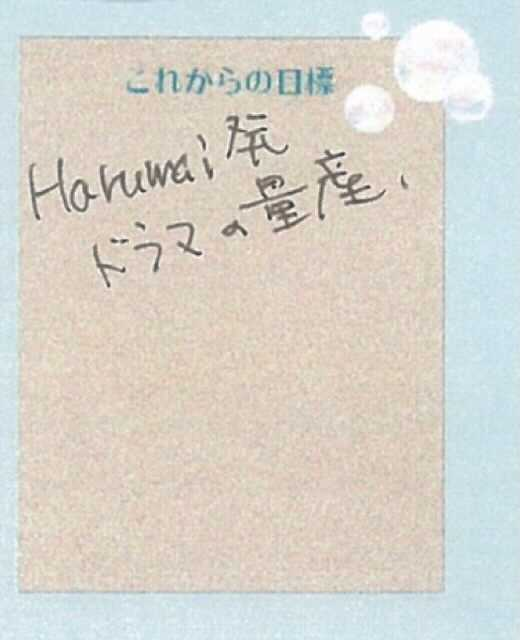 これからの目標
Harumai発
ドラマの量産、